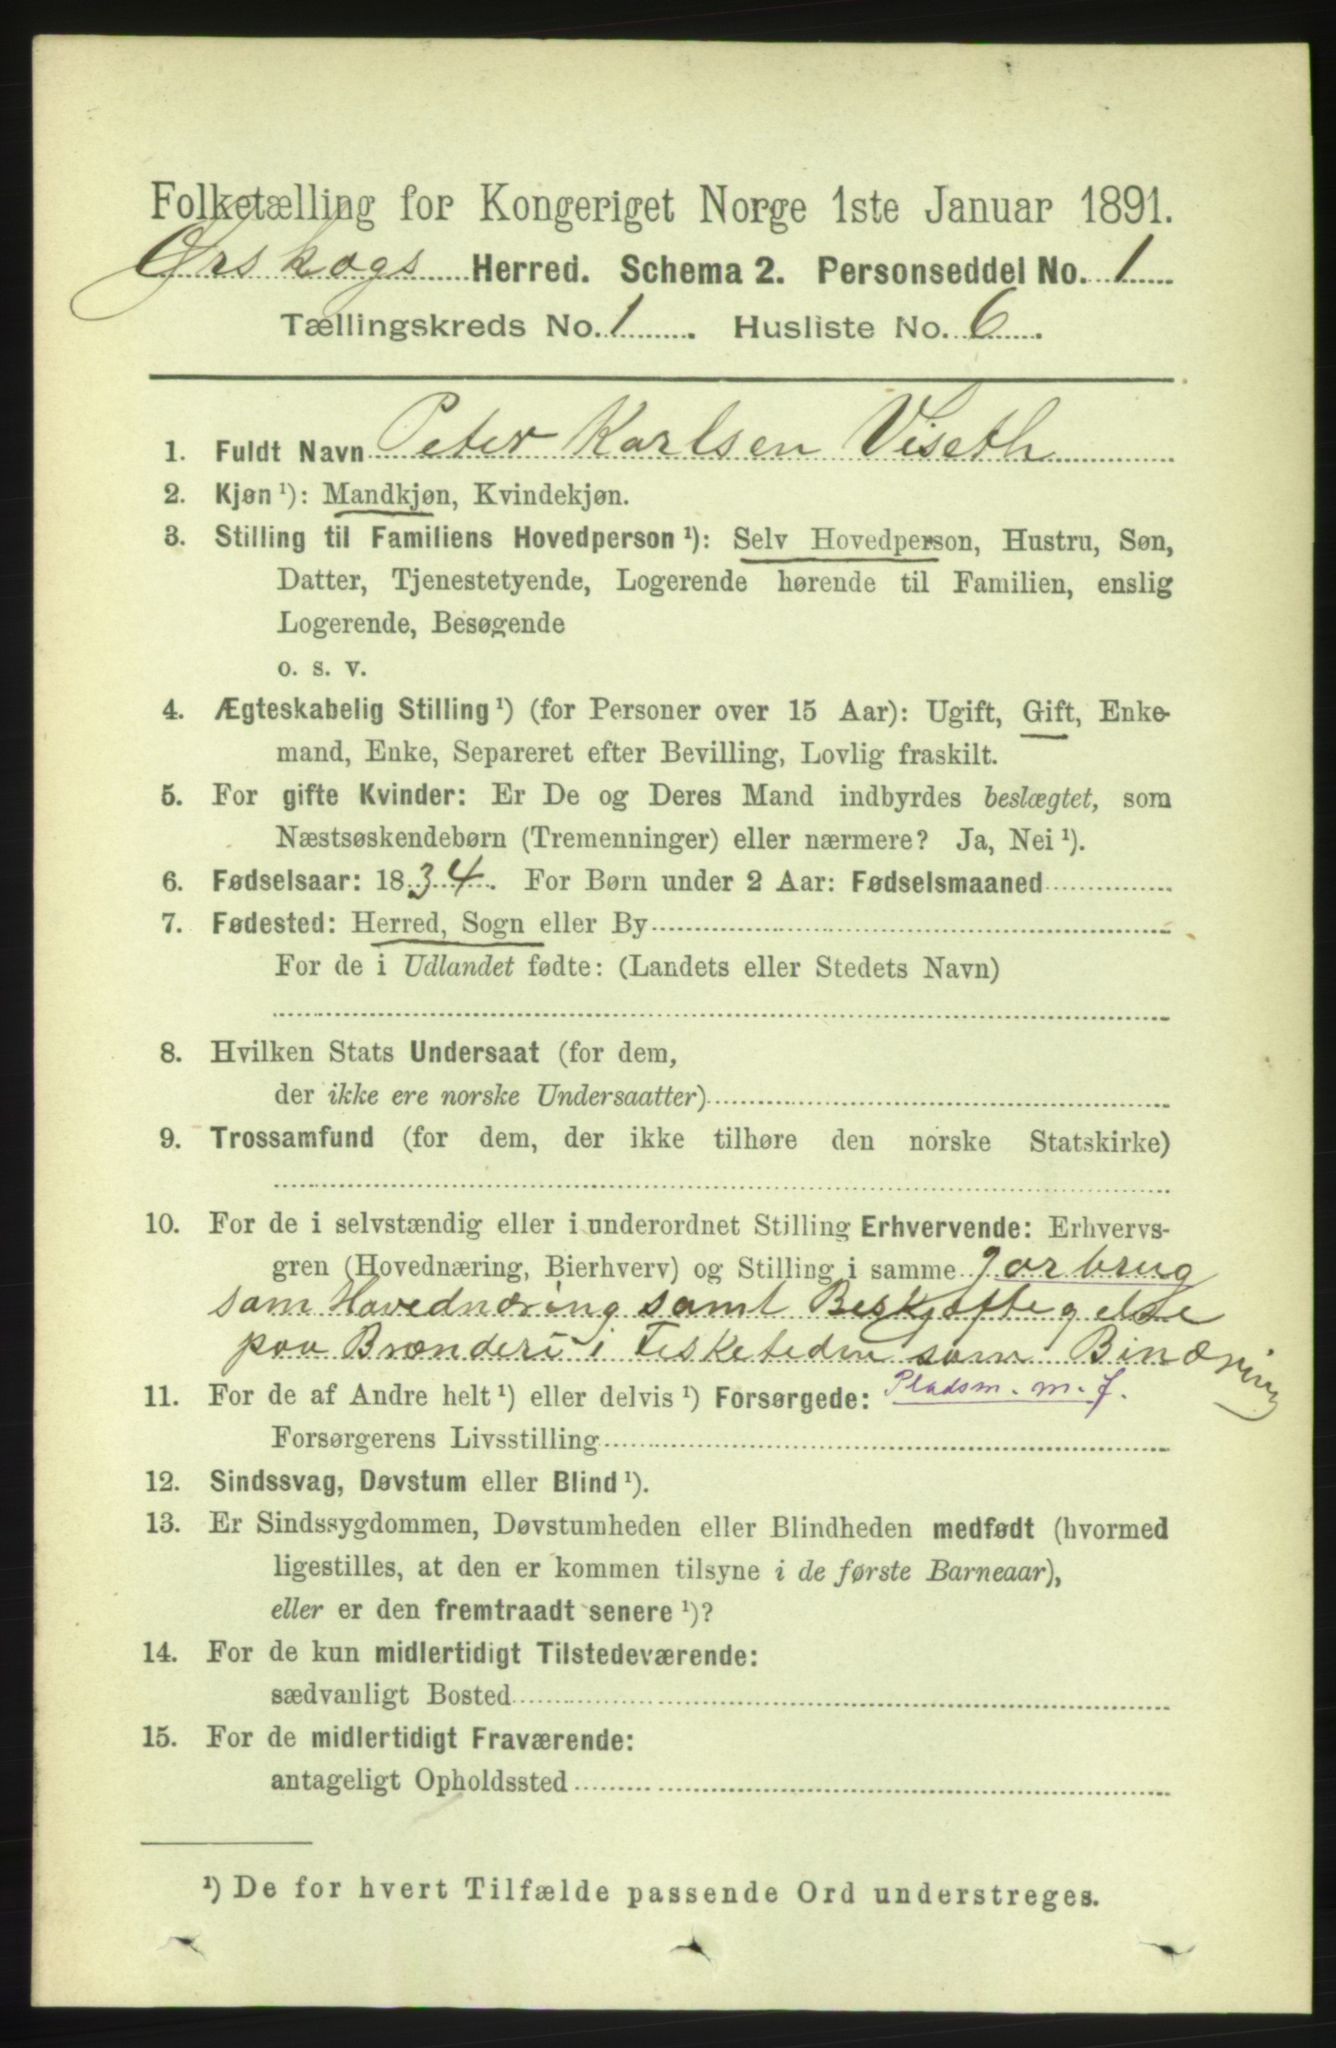 Folketælling for Kongeriget Norge 1ste Januar 1891.
Ørskogs Herred. Schema 2. Personseddel No. 1
Tællingskreds No. 1. Husliste No. 6.
1. Fuldt Navn Peter Karlsen Viseth
2. Kjøn ¹): Mandkjøn, Kvindekjøn.
3. Stilling til Familiens Hovedperson ¹): Selv Hovedperson, Hustru, Søn,
Datter, Tjenestetyende, Logerende hørende til Familien, enslig
Logerende, Besøgende
o. s. v.
4. Ægteskabelig Stilling ¹) (for Personer over 15 Aar): Ugift, Gift, Enke-
mand, Enke, Separeret efter Bevilling, Lovlig fraskilt.
5. For gifte Kvinder: Er De og Deres Mand indbyrdes beslægtet, som
Næstsøskendebørn (Tremenninger) eller nærmere? Ja, Nei ¹).
6. Fødselsaar: 1834. For Børn under 2 Aar: Fødselsmaaned
7. Fødested: Herred, Sogn eller By
For de i Udlandet fødte: (Landets eller Stedets Navn)
8. Hvilken Stats Undersaat (for dem,
der ikke ere norske Undersaatter)
9. Trossamfund (for dem, der ikke tilhøre den norske Statskirke)
10. For de i selvstændig eller i underordnet Stilling Erhvervende: Erhvervs-
gren (Hovednæring, Bierhverv) og Stilling i samme Jorbrug
som Hovednæring samt Beskjæftegelse
paa Brænderi i Fesketeden som Binæring
Pladsm. m. J.
11. For de af Andre helt ¹) eller delvis ¹) Forsørgede:
Forsørgerens Livsstilling
12. Sindssvag, Døvstum eller Blind ¹).
13. Er Sindssygdommen, Døvstumheden eller Blindheden medfødt (hvormed
ligestilles, at den er kommen tilsyne i de første Barneaar),
eller er den fremtraadt senere ¹)?
14. For de kun midlertidigt Tilstedeværende:
sædvanligt Bosted
15. For de midlertidigt Fraværende:
antageligt Opholdssted
¹) De for hvert Tilfælde passende Ord understreges.